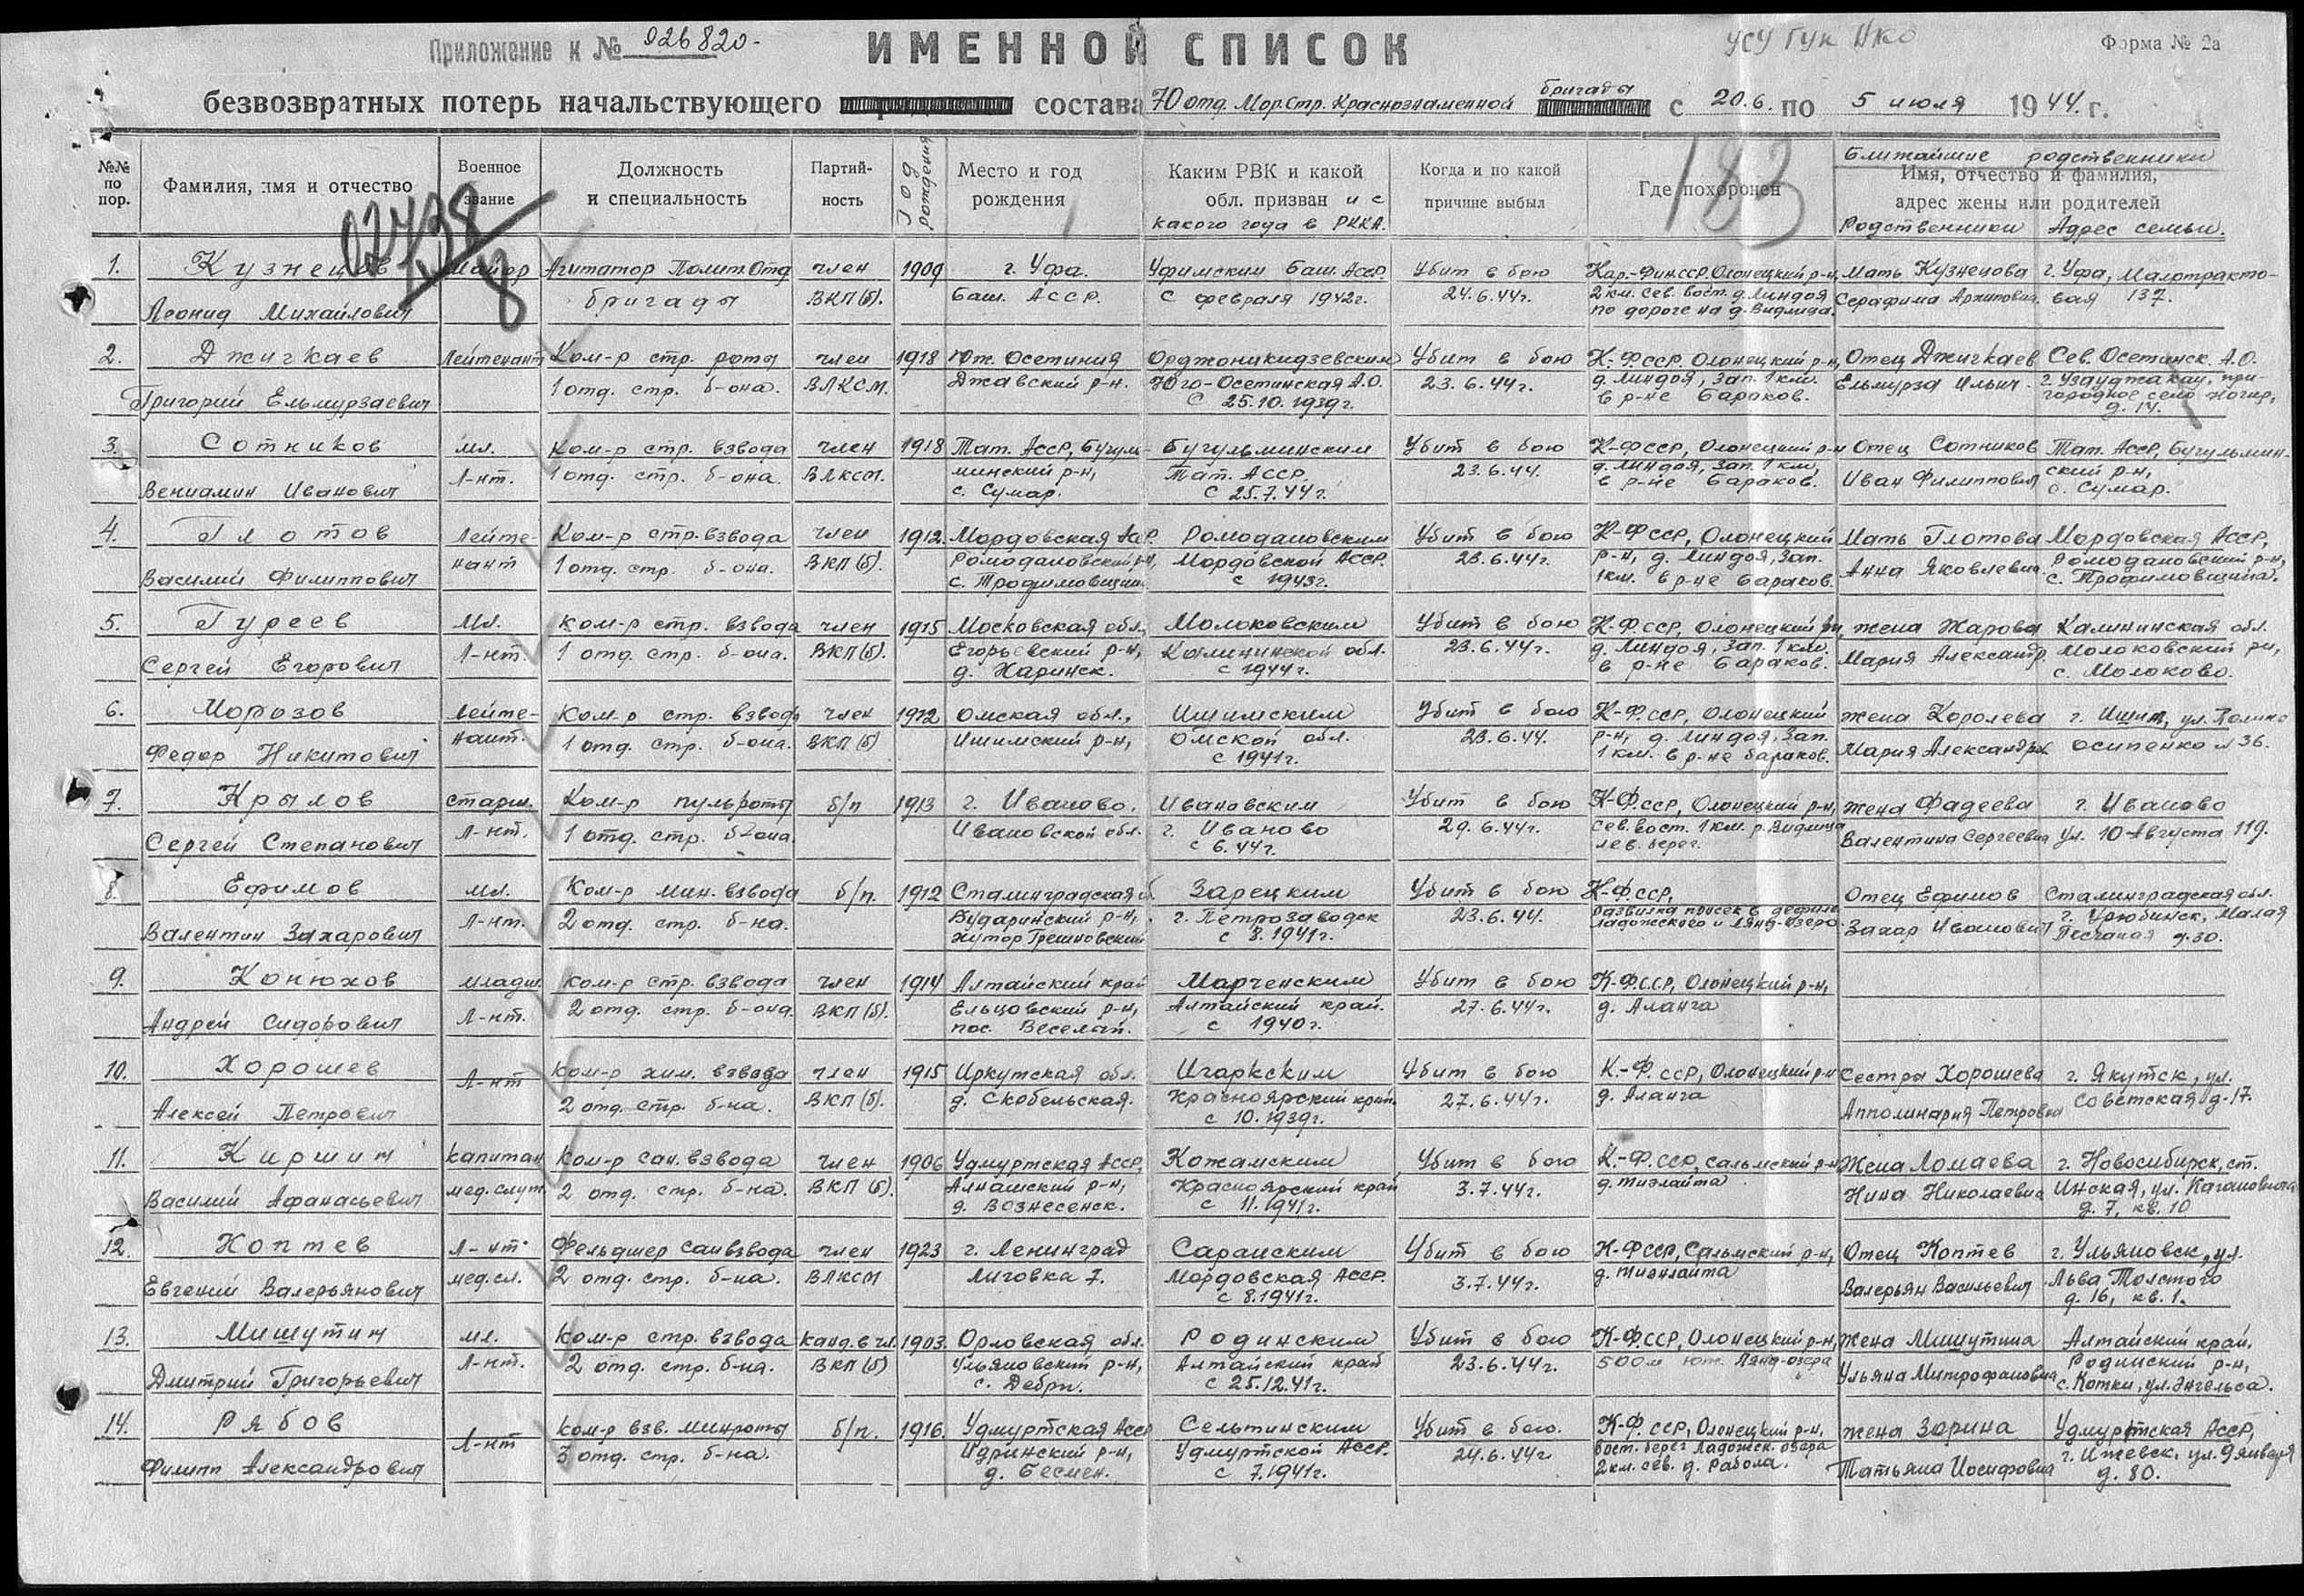 Приложение к № 026820-
ИМЕННОЙ СПИСОК
УСУ ГУК НКО
Форма № 2а
безвозвратных потерь начальствующего состава 70 отд. Мор. Стр. Краснознаменной бригады с 20.6. по 5 июля 1944 г.
02738
8
183
№№ по пор.
Фамилия, имя и отчество
Военное звание
Должность и специальность
Партий-ность
Год рождения
Место и год рождения
Каким РВК и какой обл. призван и с какого года в РККА.
Когда и по какой причине выбыл
Где похоронен
Ближайшие родственники
Имя, отчество и фамилия, адрес жены или родителей
Родственники Адрес семьи.
1. Кузнецов Майор Агитатор Полит. Отд член 1909 г. Уфа. Уфимским Баш. Асср. Убит в бою Кар.-Фин.сср, Олонецкий р-н, Мать Кузнецова г. Уфа, Малотракто-
Леонид Михайлович бригады ВКП(б). Баш. АССР. с февраля 1942г. 24.6.44г. 2 км. сев. вост. д. Линдоя Серафима Архиповна вая 137.
по дороге на д. Видлица.
2. Джигкаев Лейтенант Ком-р стр. роты член 1918 Юж. Осетиния Орджоникидзевским Убит в бою К.-Ф.сср, Олонецкий р-н, Отец Джигкаев Сев. Осетинск. А.О.
Григорий Ельмурзаевич 1 отд. стр. б-она. ВЛКСМ. Джавский р-н. Юго-Осетинская А.О. 23.6.44г. д. Линдоя, зап. 1 км. Ельмурза Ильич. г. Узауджикау, при-
с 25.10.1939г. в р-не бараков. городное село Ногир,
д. 14.
3. Сотников Мл. Ком-р стр. взвода член 1918 Тат. Асср, Бугуль- Бугульминским Убит в бою К-Фсср, Олонецкий р-н Отец Сотников Тат. Асср, Бугульмин-
Вениамин Иванович Л-нт. 1 отд. стр. б-она. ВЛКСМ. минский р-н, Тат. АССР. 23.6.44. д. Линдоя, зап. 1 км, Иван Филиппович ский р-н,
с. Сумар. с 25.7.44г. в р-не бараков. с. Сумар.
4. Глотов Лейте- Ком-р стр. взвода член 1912. Мордовская Асср. Ромодановским Убит в бою К-Фсср, Олонецкий Мать Глотова Мордовская Асср,
Василий Филиппович нант 1 отд. стр. б-она. ВКП(б). Ромодановский р-н, Мордовской АССР. 23.6.44г. р-н, д. Линдоя, зап. Анна Яковлевна Ромодановский р-н,
с. Трофимовщина с 1943г. 1км. в р-не бараков. с. Трофимовщина.
5. Гуреев Мл. Ком-р стр. взвода член 1915 Московская обл., Молоковским Убит в бою К-Ф.сср, Олонецкий р-н, жена Жарова Калининская обл.
Сергей Егорович Л-нт. 1 отд. стр. б-она. ВКП(б). Егорьевский р-н, Калининской обл. 23.6.44г. д. Линдоя, зап. 1 км. Мария Александр. Молоковский р-н,
д. Харинск. с 1944г. в р-не бараков. с. Молоково.
6. Морозов Лейте- Ком-р стр. взвода член 1922 Омская обл., Ишимским Убит в бою К-Ф.сср, Олонецкий жена Королева г. Ишим, ул. Полины
Федор Никитович нант. 1 отд. стр. б-она. ВКП(б) Ишимский р-н, Омской обл. 23.6.44. р-н, д. Линдоя, зап. Мария Александр. Осипенко № 36.
с 1941г. 1 км. в р-не бараков.
7. Крылов старш. Ком-р пульроты б/п 1913 г. Иваново. Ивановским Убит в бою К-Ф.сср, Олонецкий р-н, жена Фадеева г. Иваново
Сергей Степанович Л-нт. 1 отд. стр. б-она. Ивановской обл. г. Иваново 29.6.44г. сев. вост. 1 км. р. Видлица Валентина Сергеевна ул. 10-Августа 119.
с 6.44г. лев. берег.
8. Ефимов мл. Ком-р мин. взвода б/п. 1912 Сталинградская Зарецким Убит в бою К-Ф.сср, Отец Ефимов Сталинградская обл.
Валентин Захарович Л-нт. 2 отд. стр. б-на. Бударинский р-н, г. Петрозаводск 23.6.44. развилка просек в дефиле Захар Иванович г. Урюбинск, Малая
хутор Грешновский с 8.1941г. Ладожского и Лянд-озера. Песчаная д. 30.
9. Конюхов младш. Ком-р стр. взвода член 1914 Алтайский край Марченским Убит в бою К-Ф.С.С.Р, Олонецкий р-н,
Андрей Сидорович Л-нт. 2 отд. стр. б-она. ВКП(б). Ельцовский р-н, Алтайский край. 27.6.44г. д. Аланга
пос. Веселай. с 1940г.
10. Хорошев Л-нт Ком-р хим. взвода член 1915 Иркутская обл. Игаркским Убит в бою К.-Ф. сср, Олонецкий р-н Сестра Хорошева г. Якутск, ул.
Алексей Петрович 2 отд. стр. б-на. ВКП(б). д. Скобельская. Красноярский край. 27.6.44г. д. Аланга Апполинария Петровна Советская д-17.
с 10.1939г.
11. Киршин капитан Ком-р сан. взвода член 1906 Удмуртская Асср, Кожамским Убит в бою К.-Ф.сср, Сальмский р-н Жена Ломаева г. Новосибирск, ст.
Василий Афанасьевич мед. служ. 2 отд. стр. б-на. ВКП(б). Алнашский р-н, Красноярский край 3.7.44г. д. Тиэлайта Нина Николаевна Инская, ул. Кагановича
д. Вознесенск. с 11.1941г. д. 7, кв. 10
12. Коптев Л-нт Фельдшер сан взвода член 1923 г. Ленинград Саранским Убит в бою К-Фсср, Сальмский р-н, Отец Коптев г. Ульяновск, ул.
Евгений Валерьянович мед. сл. 2 отд. стр. б-на. ВЛКСМ Лиговка 7. Мордовская АССР. 3.7.44г. д. Тиэлайта Валерьян Васильевич Льва Толстого
с 8.1941г. д. 16, кв. 1.
13. Мишутин мл. Ком-р стр. взвода канд. в чл. 1903. Орловская обл. Родинским Убит в бою К-Ф.ССР, Олонецкий р-н, Жена Мишутина Алтайский край,
Дмитрий Григорьевич Л-нт. 2 отд. стр. б-на. ВКП(б) Ульяновский р-н, Алтайский край 23.6.44г. 500м юж. Лянд-озера Ульяна Митрофановна Родинский р-н,
с. Дебри. с 25.12.41г. с. Котки, ул. Энгельса.
14. Рябов Л-нт Ком-р взв. минроты б/п. 1916. Удмуртская Асср Сельтинским Убит в бою. К-Ф. сср, Олонецкий р-н, жена Зорина Удмуртская Асср,
Филипп Александрович 3 отд. стр. б-на. Идринский р-н, Удмуртской АССР. 24.6.44г. Вост. берег Ладожск. озера Татьяна Иосифовна г. Ижевск, ул. 9 января
д. Бесмен. с 7.1941г. 2 км. сев. д. Рабола. д. 80.